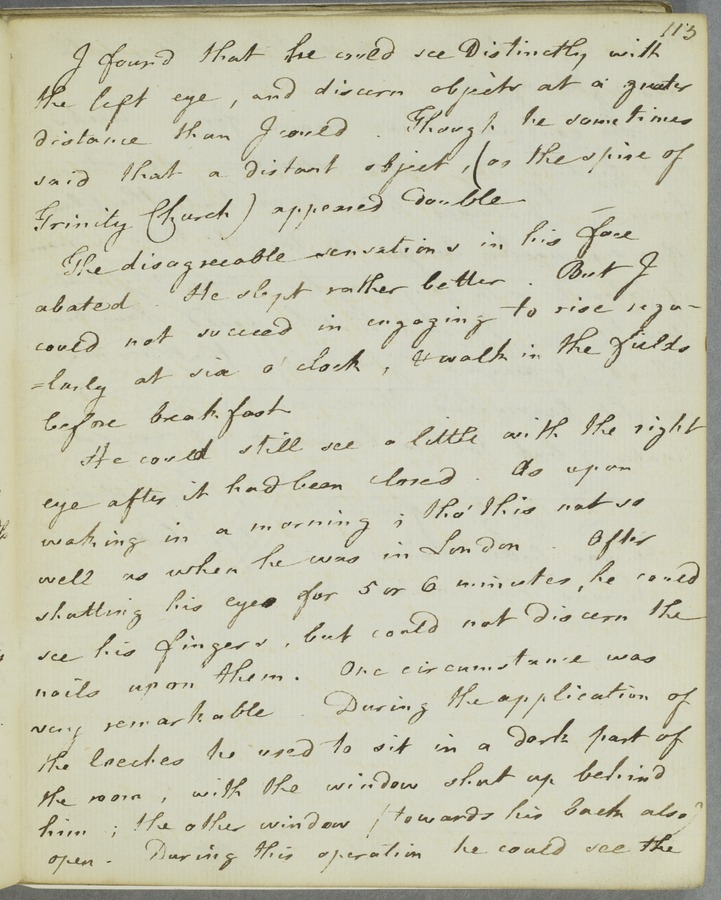 113
I found that he could see Distinctly with
the left eye, and discern objects at a greater
distance than I could. Though he sometimes
said that a distant object, (as the spire of
Trinity Church) appeared Double
The disagreeable sensations in his face
abated. He slept rather better. But I
could not succeed in engaging to rise regu-
=larly at six o'clock, & walk in the fields
before breakfast
He could still see a little with the right
eye after it had been closed. As upon
waking in a morning; tho' this not so
well as when he was in London. After
shutting his eyes for 5 or 6 minutes, he could
see his fingers, but could not discern the
nails upon them. One circumstance was
very remarkable. During the application of
the leeches he used to sit in a dark part of
the room, with the window shut up behind
him; the other window (towards his back also)
open. During this operation he could see the